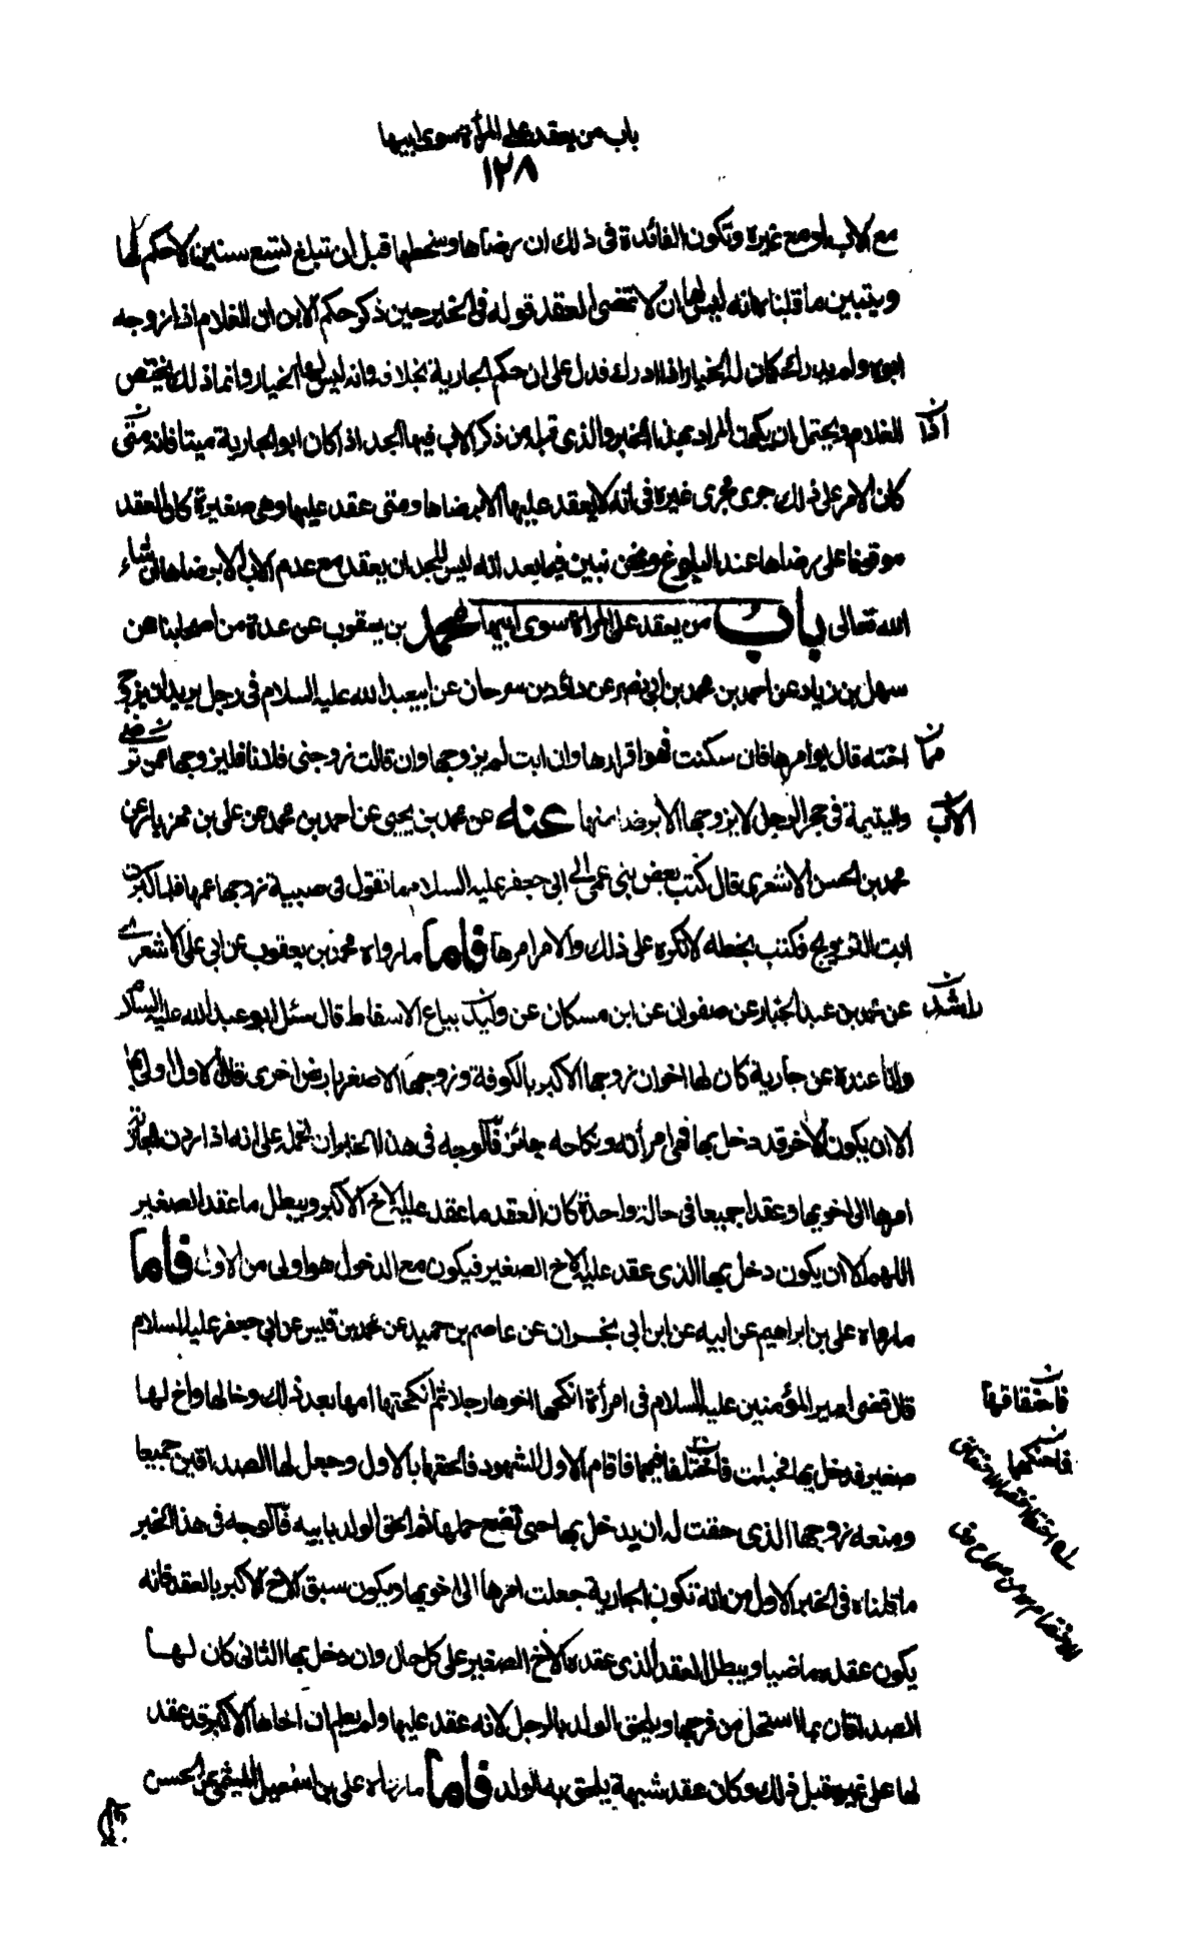 باب من يعقد على المرأة سوى ابيها
١٢٨
مع الاب او مع غيره وتكون الفائدة فى ذلك ان رضاها وسخطها قبل ان تبلغ تسع سنين لا حكم لها
ويتبين ما قلناه انه ليس لها ان لا تمضى العقد قوله فى الخبر حين ذكر حكم الابن ان الغلام اذا زوجه
ابوه ولم يدرك كان له الخيار اذا ادرك فدل على ان حكم الجارية بخلافه وانه ليس لها الخيار وانما ذلك يختص
الغلام ويحتمل ان يكون المراد بهذا الخبر والذى قبله من ذكر الاب فيها الجد اذ كان ابو الجارية ميتا فانه متى
اذا
كان الامر على ذلك جرى مجرى غيره فى انه لا يعقد عليها الا برضاها ومتى عقد عليها وهى صغيرة كان العقد
موقوفا على رضاها عند البلوغ ونحن نبين فيما بعد انه ليس للجد ان يعقد مع عدم الاب الا برضاها ان شاء
الله تعالى باب من يعقد على المرأة سوى ابيها محمد بن يعقوب عن عدة من اصحابنا عن
سهل بن زياد عن احمد بن محمد بن ابى نصر عن داود بن سرحان عن ابيعبد الله عليه السلام فى رجل يريد ان يزوج
اخته قال يوامرها فان سكتت فهو اقرارها وان ابت لم يزوجها وان قالت زوجنى فلانا فليزوجها ممن ترضى
واليتيمة فى حجر الرجل لا يزوجها الا برضا منها عنه عن محمد بن يحيى عن احمد بن محمد عن على بن مهزيار عن
محمد بن الحسن الاشعرى قال كتب بعض بنى عمى الى ابى جعفر عليه السلام ما تقول فى صبية زوجها عمها فلما كبرت
ابت التزويج فكتب بخطه لا تكره على ذلك والامر امرها فاما ما رواه محمد بن يعقوب عن ابى على الاشعرى
عن محمد بن عبد الجبار عن صفوان عن ابن مسكان عن وليد بياع الاسقاط قال سئل ابو عبد الله عليه السلام
وانا عنده عن جارية كان لها اخوان زوجها الاكبر بالكوفة وزوجها الاصغر بارض اخرى قال الاول اولى بها
الا ان يكون الاخر قد دخل بها فهى امرأته ونكاحه جائز فالوجه فى هذا الخبر ان نحمله على انه اذا ردت الجارية
امرها الى اخويها وعقدا جميعا فى حالة واحدة كان العقد ما عقد عليه الاخ الاكبر ويبطل ما عقد الصغير
اللهم الا ان يكون دخل بها الذى عقد عليه الاخ الصغير فيكون مع الدخول هو اولى من الاول فاما
ما رواه على بن ابراهيم عن ابيه عن ابن ابى نجران عن عاصم بن حميد عن محمد بن قيس عن ابى جعفر عليه السلام
قال قضى امير المؤمنين عليه السلام فى امرأة انكحها اخوها رجلا ثم انكحتها امها بعد ذلك وخالها واخ لها
صغير فدخل بها فحبلت فاختلفا فيها فاقام الاول الشهود فالحقها بالاول وجعل لها الصداقين جميعا
ومنعه زوجها الذى حقت له ان يدخل بها حتى تضع حملها ثم الحق الولد بابيه فالوجه فى هذا الخبر
ما قلناه فى الخبر الاول من انه تكون الجارية جعلت امرها الى اخويها ويكون سبق الاخ الاكبر بالعقد فانه
يكون عقده ماضيا ويبطل العقد الذى عقده الاخ الصغير على كل حال وان دخل بها الثانى كان لها
الصداقان بما استحل من فرجها ويلحق الولد بالرجل لانه عقد عليها ولم يعلم ان اخاها الاكبر قد عقد
لها على غيره قبل ذلك وكان عقد شبهة يلحق به الولد فاما ما رواه على بن اسمعيل الميثمى عن الحسن